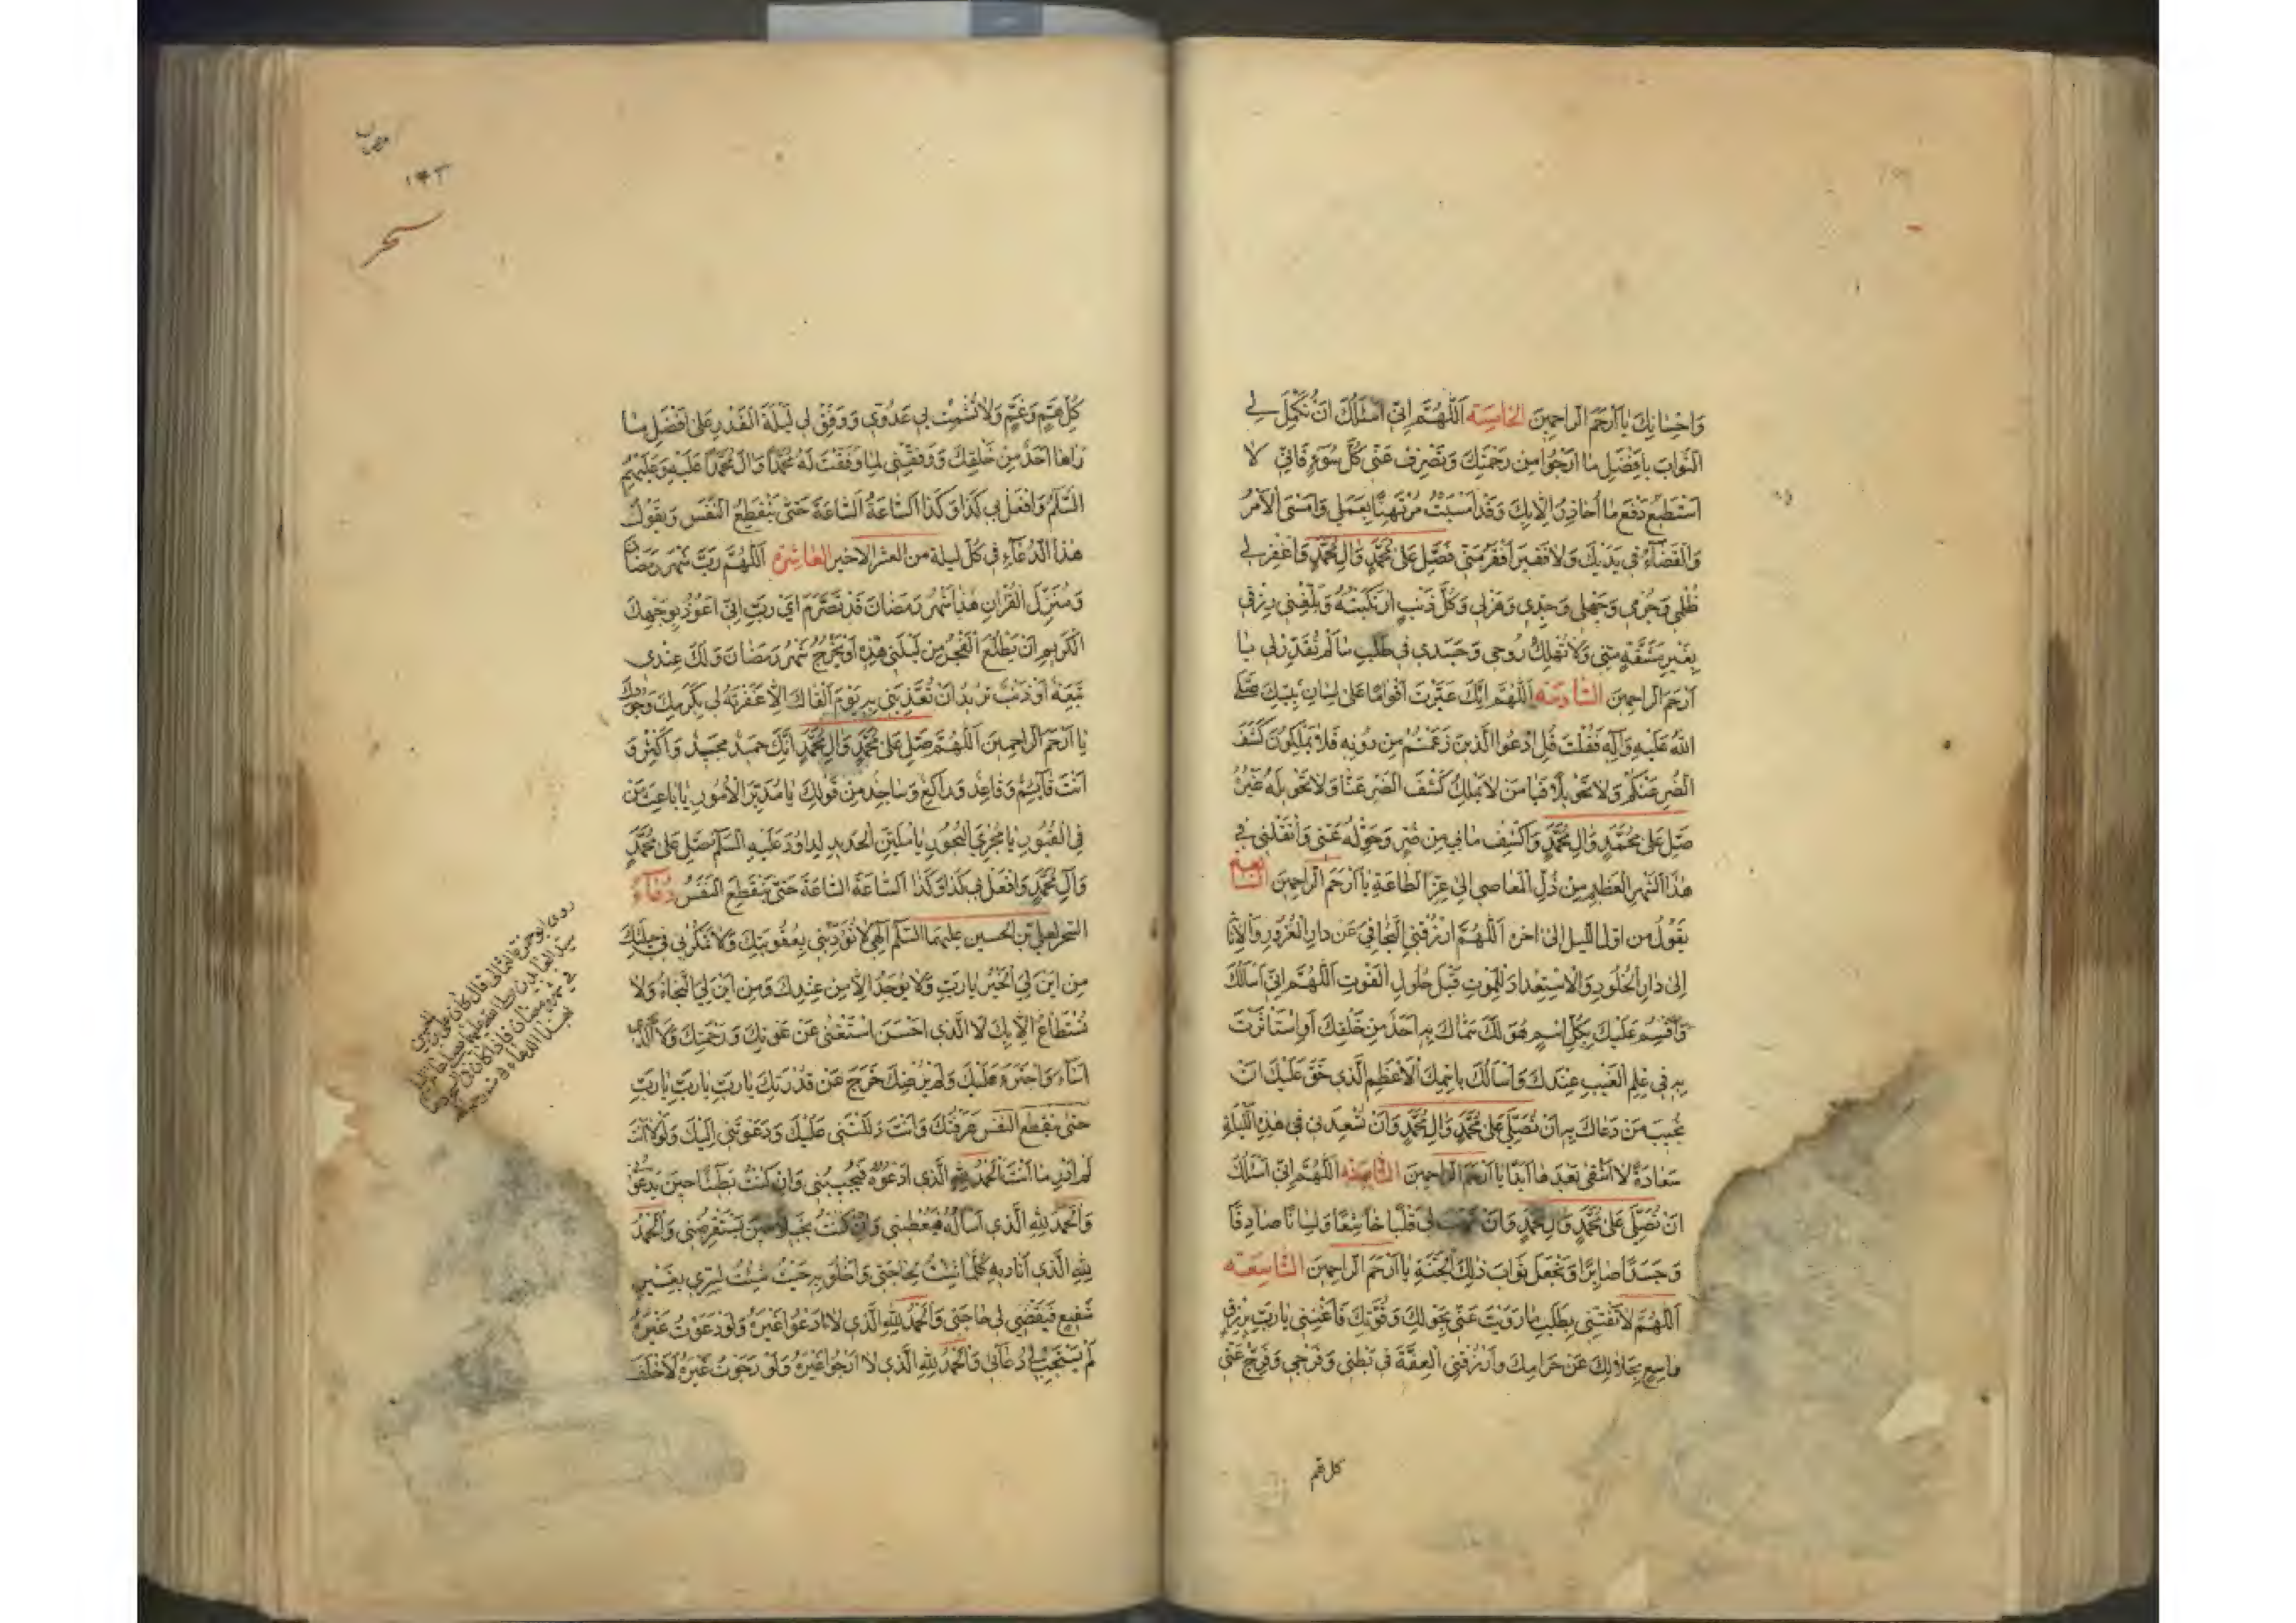 وَاِحْسٰانِكَ يٰا اَرْحَمَ الرّاحِمينَ الخامسة اَللّٰهُمَّ اِنّي اَسْئَلُكَ اَنْ تُكْمِلَ لي
الثَّوابَ بِاَفْضَلِ مٰا اَرْجُوا مِنْ رَحْمَتِكَ وَتَصْرِفَ عَنّي كُلَّ سُوءٍ فَاِنّي لا
اَسْتَطيعُ دَفْعَ مٰا اُحٰاذِرُ اِلّا بِكَ وَقَدْ اَمْسَيْتُ مُرْتَهِنًا بِعَمَلي وَاَمْسَى الْاَمْرُ
وَالْقَضٰآءُ في يَدَيْكَ وَلا فَقيرَ اَفْقَرُ مِنّي فَصَلِّ عَلىٰ مُحَمَّدٍ وَاٰلِ مُحَمَّدٍ وَاغْفِرْ لي
ظُلْمي وَجُرْمي وَجَهْلي وَجِدّي وَهَزْلي وَكُلَّ ذَنْبٍ ارْتَكَبْتُهُ وَبَلِّغْني رِزْقي
بِغَيْرِ مَشَقَّةٍ مِنّي وَلا تُهْلِكْ رُوحي وَجَسَدي في طَلَبِ مٰا لَمْ تُقَدِّرْ لي يٰا
اَرْحَمَ الرّاحِمينَ السّادسة اَللّٰهُمَّ اِنَّكَ عَيَّرْتَ اَقْوامًا عَلىٰ لِسٰانِ نَبِيِّكَ صَلَّى
اللهُ عَلَيْهِ وَاٰلِهِ فَقُلْتَ قُلِ ادْعُوا الَّذينَ زَعَمْتُمْ مِنْ دُونِهِ فَلا يَمْلِكُونَ كَشْفَ
الضُّرِّ عَنْكُمْ وَلا تَحْويلًا فَيٰا مَنْ لا يَمْلِكُ كَشْفَ الضُّرِّ عَنّا وَلا تَحْويلَهُ غَيْرُهُ
صَلِّ عَلىٰ مُحَمَّدٍ وَاٰلِ مُحَمَّدٍ وَاكْشِفْ مٰا بي مِنْ ضُرٍّ وَحَوِّلْهُ عَنّي وَانْقُلْني في
هٰذَا الشَّهْرِ الْعَظيمِ مِنْ ذُلِّ الْمَعٰاصي اِلىٰ عِزِّ الطّاعَةِ يٰا اَرْحَمَ الرّاحِمينَ السّابعة
يَقُولُ مِنْ اَوَّلِ اللَّيْلِ اِلىٰ اٰخِرِهِ اَللّٰهُمَّ ارْزُقْنِي التَّجٰافي عَنْ دارِ الْغُرُورِ وَالْاِنٰابَةَ
اِلىٰ دارِ الْخُلُودِ وَالْاِسْتِعْدادَ لِلْمَوْتِ قَبْلَ حُلُولِ الْفَوْتِ اَللّٰهُمَّ اِنّي اَسْاَلُكَ
وَاُقْسِمُ عَلَيْكَ بِكُلِّ اسْمٍ هُوَ لَكَ سَمّاكَ بِهِ اَحَدٌ مِنْ خَلْقِكَ اَوِ اسْتَاْثَرْتَ
بِهِ في عِلْمِ الْغَيْبِ عِنْدَكَ وَاَسْاَلُكَ بِاسْمِكَ الْاَعْظَمِ الَّذي حَقٌّ عَلَيْكَ اَنْ
تُجيبَ مَنْ دَعٰاكَ بِهِ اَنْ تُصَلِّيَ عَلىٰ مُحَمَّدٍ وَاٰلِ مُحَمَّدٍ وَاَنْ تُسْعِدَني في هٰذِهِ اللَّيْلَةِ
سَعٰادَةً لا اَشْقىٰ بَعْدَهٰا اَبَدًا يٰا اَرْحَمَ الرّاحِمينَ الثّامنة اَللّٰهُمَّ اِنّي اَسْئَلُكَ
اَنْ تُصَلِّيَ عَلىٰ مُحَمَّدٍ وَاٰلِ مُحَمَّدٍ وَاَنْ لي قَلْبًا خٰاشِعًا وَلِسٰانًا صٰادِقًا
وَجَسَدًا صٰابِرًا وَتَجْعَلَ ثَوابَ ذٰلِكَ الْجَنَّةَ يٰا اَرْحَمَ الرّاحِمينَ التّاسعة
اَللّٰهُمَّ لا تَفْتِنّي بِطَلَبِ مٰا زَوَيْتَ عَنّي بِحَوْلِكَ وَقُوَّتِكَ وَاَغْنِني يٰا رَبِّ بِرِزْقٍ
واسِعٍ بِحَلالِكَ عَنْ حَرامِكَ وَارْزُقْنِي الْعِفَّةَ في بَطْني وَفَرْجي وَفَرِّجْ عَنّي
كل هم
١٤٣
سحر
كُلَّ هَمٍّ وَغَمٍّ وَلا تُشْمِتْ بي عَدُوّي وَوَفِّقْ لي لَيْلَةَ الْقَدْرِ عَلىٰ اَفْضَلِ مٰا
رَاٰهٰا اَحَدٌ مِنْ خَلْقِكَ وَوَفِّقْني لِمٰا وَفَّقْتَ لَهُ مُحَمَّدًا وَاٰلَ مُحَمَّدٍ عَلَيْهِ وَعَلَيْهِمُ
السَّلٰمُ وَافْعَلْ بي كَذا وَكَذَا السّاعَةَ السّاعَةَ حَتّىٰ يَنْقَطِعَ النَّفَسُ وَيَقُولُ
هٰذَا الدُّعٰآءَ في كُلِّ لَيْلَةٍ مِنَ الْعَشْرِ الْاَخيرِ العاشرة اَللّٰهُمَّ رَبَّ شَهْرِ رَمَضٰانَ
وَمُنَزِّلَ الْقُرْاٰنِ هٰذا شَهْرُ رَمَضٰانَ قَدْ تَصَرَّمَ اَيْ رَبِّ اِنّي اَعُوذُ بِوَجْهِكَ
الْكَريمِ اَنْ يَطْلُعَ الْفَجْرُ مِنْ لَيْلَتي هٰذِهِ اَوْ يَخْرُجَ شَهْرُ رَمَضٰانَ وَلَكَ عِنْدي
تَبِعَةٌ اَوْ ذَنْبٌ تُريدُ اَنْ تُعَذِّبَني بِهِ يَوْمَ اَلْقٰاكَ اِلّا غَفَرْتَهُ لي بِكَرَمِكَ وَجُودِكَ
يٰا اَرْحَمَ الرّاحِمينَ اَللّٰهُمَّ صَلِّ عَلىٰ مُحَمَّدٍ وَاٰلِ مُحَمَّدٍ اِنَّكَ حَميدٌ مَجيدٌ وَاَكْثِرْ وَ
اَنْتَ قٰآئِمٌ وَقٰاعِدٌ وَراكِعٌ وَسٰاجِدٌ مِنْ قَوْلِكَ يٰا مُدَبِّرَ الْاُمُورِ يٰا بٰاعِثَ مَنْ
فِي الْقُبُورِ يٰا مُجْرِيَ الْبُحُورِ يٰا مُلَيِّنَ الْحَديدِ لِداوُدَ عَلَيْهِ السَّلٰمُ صَلِّ عَلىٰ مُحَمَّدٍ
وَاٰلِ مُحَمَّدٍ وَافْعَلْ بي كَذا وَكَذَا السّاعَةَ السّاعَةَ حَتّىٰ يَنْقَطِعَ النَّفَسُ دعآء
السَّحَرِ لِعَلِيِّ بْنِ الْحُسَيْنِ عَلَيْهِمَا السَّلٰمُ اِلٰهي لا تُؤَدِّبْني بِعُقُوبَتِكَ وَلا تَمْكُرْ بي في حيلَتِكَ
مِنْ اَيْنَ لِيَ الْخَيْرُ يٰا رَبِّ وَلا يُوجَدُ اِلّا مِنْ عِنْدِكَ وَمِنْ اَيْنَ لِيَ النَّجٰاةُ وَلا
تُسْتَطٰاعُ اِلّا بِكَ لَا الَّذي اَحْسَنَ اسْتَغْنىٰ عَنْ عَوْنِكَ وَرَحْمَتِكَ وَلَا الَّذي
اَسٰآءَ وَاجْتَرَءَ عَلَيْكَ وَلَمْ يُرْضِكَ خَرَجَ عَنْ قُدْرَتِكَ يٰا رَبِّ يٰا رَبِّ يٰا رَبِّ
حَتّىٰ يَنْقَطِعَ النَّفَسُ عَرَفْتُكَ وَاَنْتَ دَلَلْتَني عَلَيْكَ وَدَعَوْتَني اِلَيْكَ وَلَوْلا اَنْتَ
لَمْ اَدْرِ مٰا اَنْتَ اَلْحَمْدُ لِلّٰهِ الَّذي اَدْعُوهُ فَيُجيبُني وَاِنْ كُنْتُ بَطيئًا حينَ يَدْعُوني
وَالْحَمْدُ لِلّٰهِ الَّذي اَسْاَلُهُ فَيُعْطيني وَاِنْ كُنْتُ بَخيلًا حينَ يَسْتَقْرِضُني وَالْحَمْدُ
لِلّٰهِ الَّذي اُناديهِ كُلَّمٰا شِئْتُ لِحٰاجَتي وَاَخْلُو بِهِ حَيْثُ شِئْتُ لِسِرّي بِغَيْرِ
شَفيعٍ فَيَقْضي لي حٰاجَتي وَالْحَمْدُ لِلّٰهِ الَّذي لا اَدْعُوا غَيْرَهُ وَلَوْ دَعَوْتُ غَيْرَهُ
لَمْ يَسْتَجِبْ لي دُعٰآئي وَالْحَمْدُ لِلّٰهِ الَّذي لا اَرْجُوا غَيْرَهُ وَلَوْ رَجَوْتُ غَيْرَهُ لَاَخْلَفَ
روى ابو حمزة الثمالي قال كان علي بن الحسين
سيد العابدين صلوات الله عليهما يصلي عامة الليل
في شهر رمضان فاذا كان في السحر دعا
بهذا الدعاء